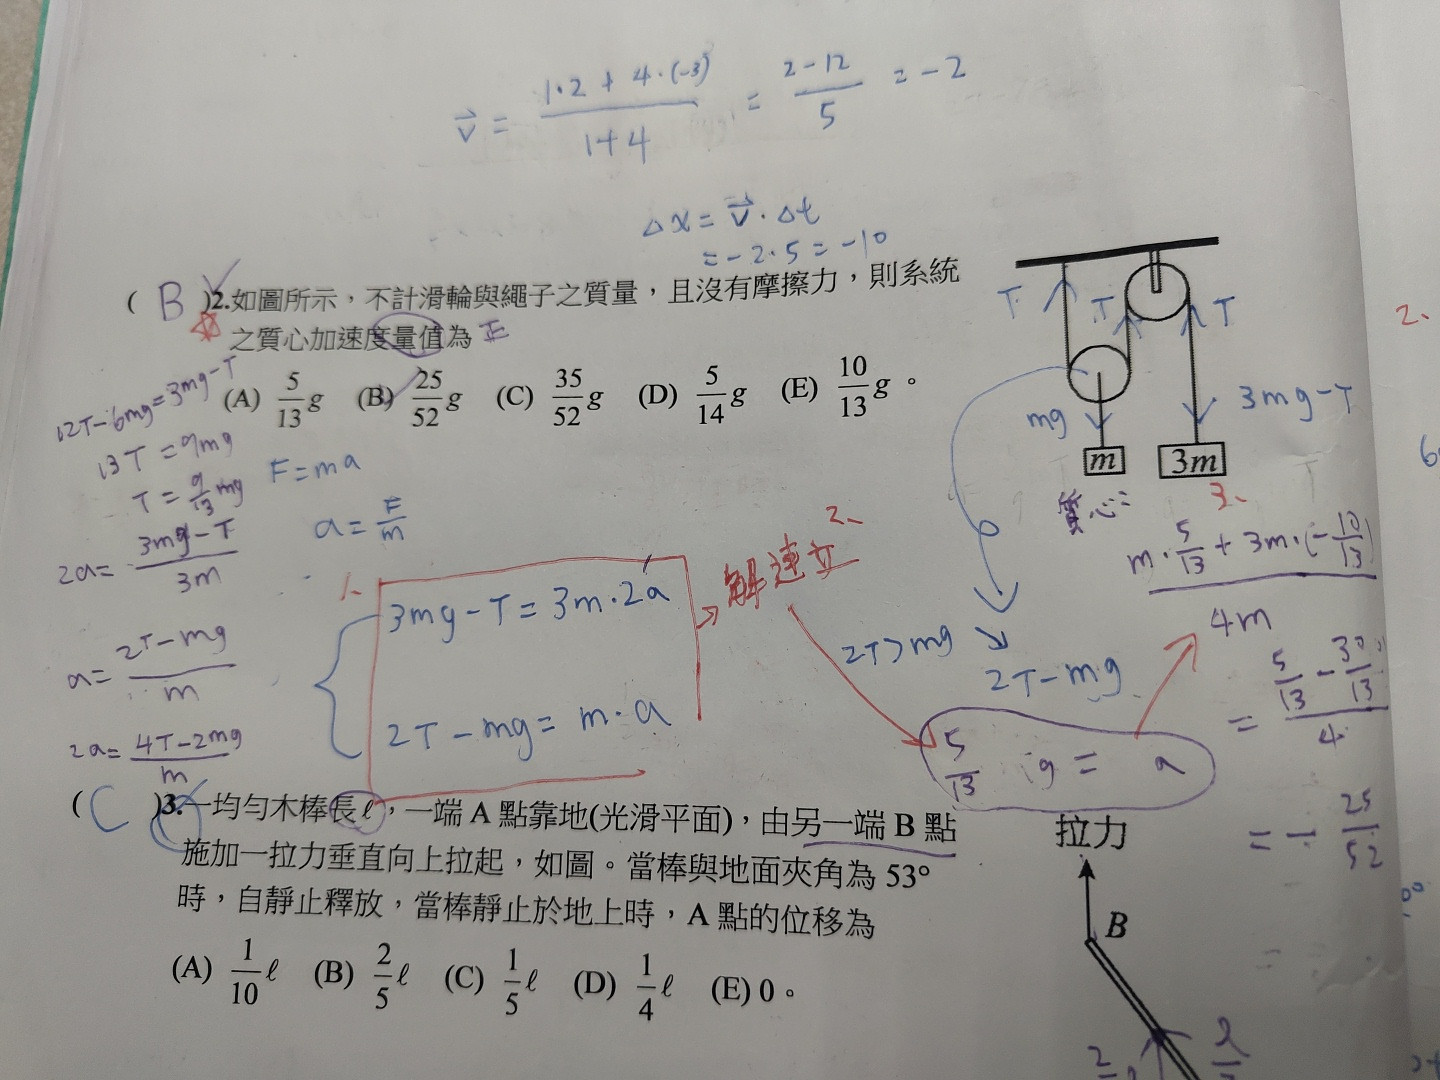 v⃗ = (1·2 + 4·(-3))/(1+4) = (2-12)/5 = -2
Δx = v⃗·Δt
= -2·5 = -10
( B )2.如圖所示，不計滑輪與繩子之質量，且沒有摩擦力，則系統
之質心加速度量值為 正
(A) 5/13 g (B) 25/52 g (C) 35/52 g (D) 5/14 g (E) 10/13 g。
T T T
mg 3mg-T
m 3m
12T-6mg=3mg-T
13T=9mg
T=9/13 mg
2a=(3mg-T)/3m
a=(2T-mg)/m
2a=(4T-2mg)/m
F=ma
a=F/m
1.
3mg-T=3m·2a
2T-mg=m·a
2.
解連立
2T>mg
2T-mg
5/13 g = a
質心:
3.
(m·5/13+3m·(-10/13))/4m
=(5/13-30/13)/4
=-25/52
( C )3.一均勻木棒長ℓ，一端 A 點靠地(光滑平面)，由另一端 B 點
施加一拉力垂直向上拉起，如圖。當棒與地面夾角為 53°
時，自靜止釋放，當棒靜止於地上時，A 點的位移為
(A) 1/10 ℓ (B) 2/5 ℓ (C) 1/5 ℓ (D) 1/4 ℓ (E) 0。
拉力
B
2.